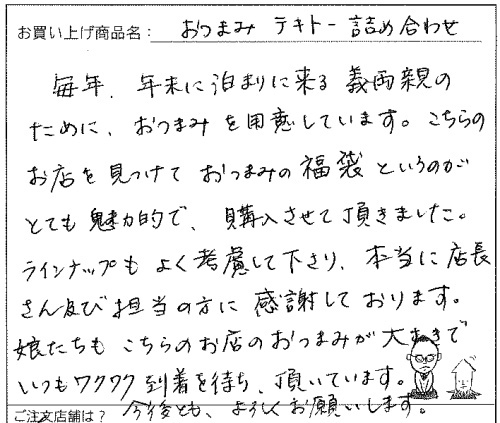 お買い上げ商品名： おつまみ テキトー 詰め合わせ
毎年、年末に泊まりに来る義両親の
ために、おつまみを用意しています。こちらの
お店を見つけて おつまみの福袋というのが
とても魅力的で、購入させて頂きました。
ラインナップもよく考慮して下さり、本当に店長
さん及び担当の方に感謝しております。
娘たちも こちらのお店のおつまみが大好きで
いつもワクワク到着を待ち、頂いています。
今後とも、よろしくお願いします。
ご注文店舗は？